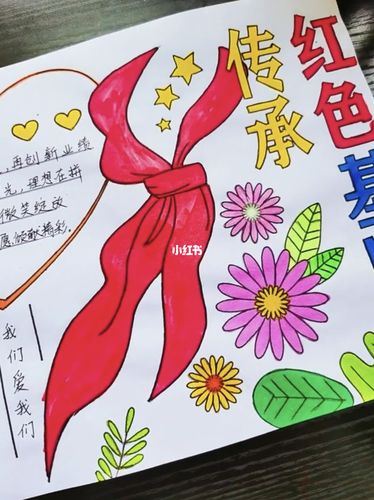 传承
红色基
再创新业绩
光，理想在拼
微笑绽放
愿倾献精彩.
我们爱我们
小红书